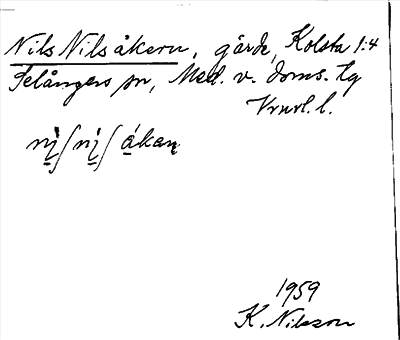 Nils Nilsåkern, gärde, Kolsta 1:4
Selångers sn, Med. v. doms. tg
Vrnrl. l.
ni̱ʃni̱ʃ åkaṇ
1959
K. Nilsson